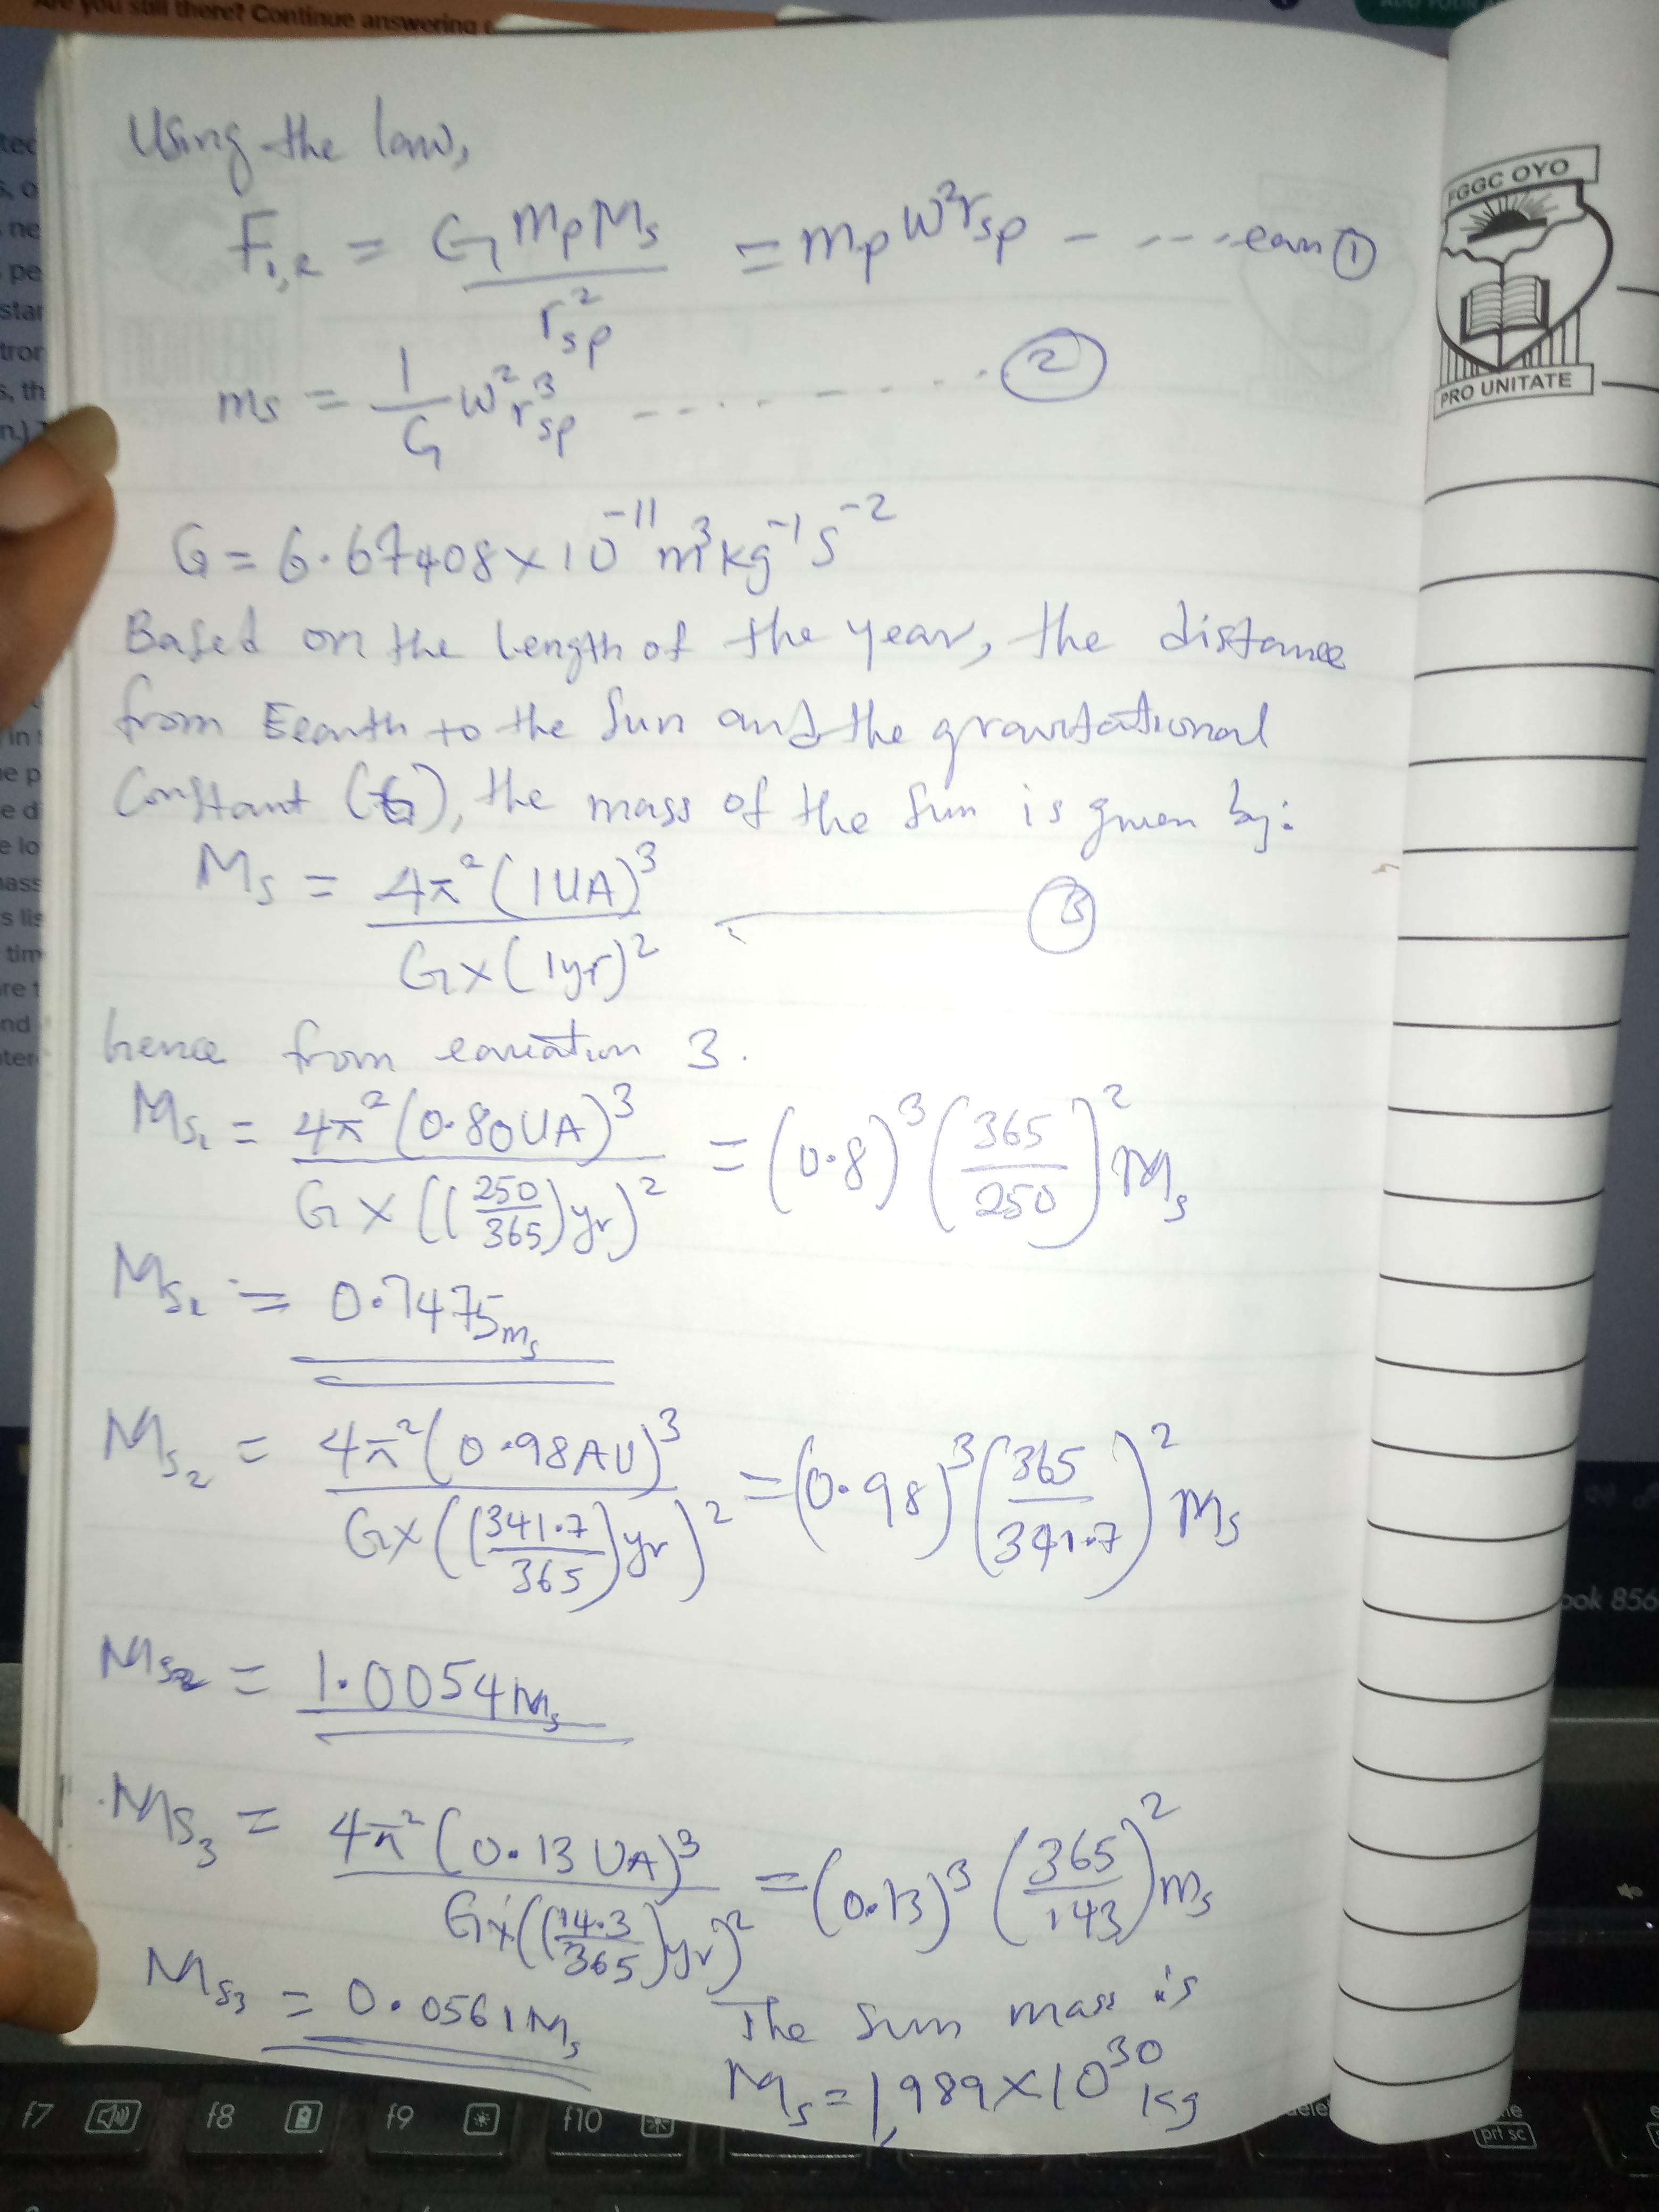 Are you still there? Continue answering
Using the law,
F₁,₂ = G mpMs / r²sp = mp w²rsp - - - - - eqn ①
ms = 1/G w²r³sp - - - - - - - - ②
G = 6.67408 x 10⁻¹¹ m³ kg⁻¹ s⁻²
Based on the length of the year, the distance
from Eearth to the Sun and the gravitational
Constant (G), the mass of the Sun is given by:
Ms = 4π²(1UA)³ / G x (1yr)² ③
hence from equation 3.
Ms₁ = 4π²(0.80UA)³ / G x ((250/365)yr)² = (0.8)³ (365/250)² Ms
Ms₁ = 0.7475ms
Ms₂ = 4π²(0.98AU)³ / G x ((341.7/365)yr)² = (0.98)³ (365/341.7)² Ms
Ms₂ = 1.0054Ms
Ms₃ = 4π²(0.13UA)³ / G x ((14.3/365)yr)² = (0.13)³ (365/143)² ms
Ms₃ = 0.0561Ms
The Sun mass is
Ms = 1,989 x 10³⁰ kg
FGGC OYO
PRO UNITATE
f7
f8
f9
f10
prt sc
ook 856